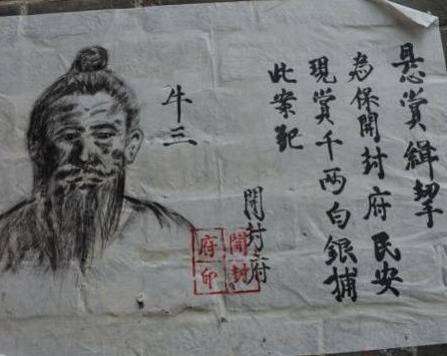 悬赏缉拏
為保開封府民安
現赏千两白銀捕
此案犯
牛三
開封府
開封府印